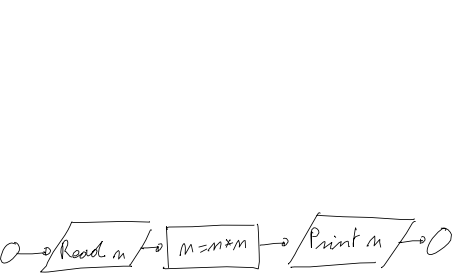 Read n
n=n*n
Print n